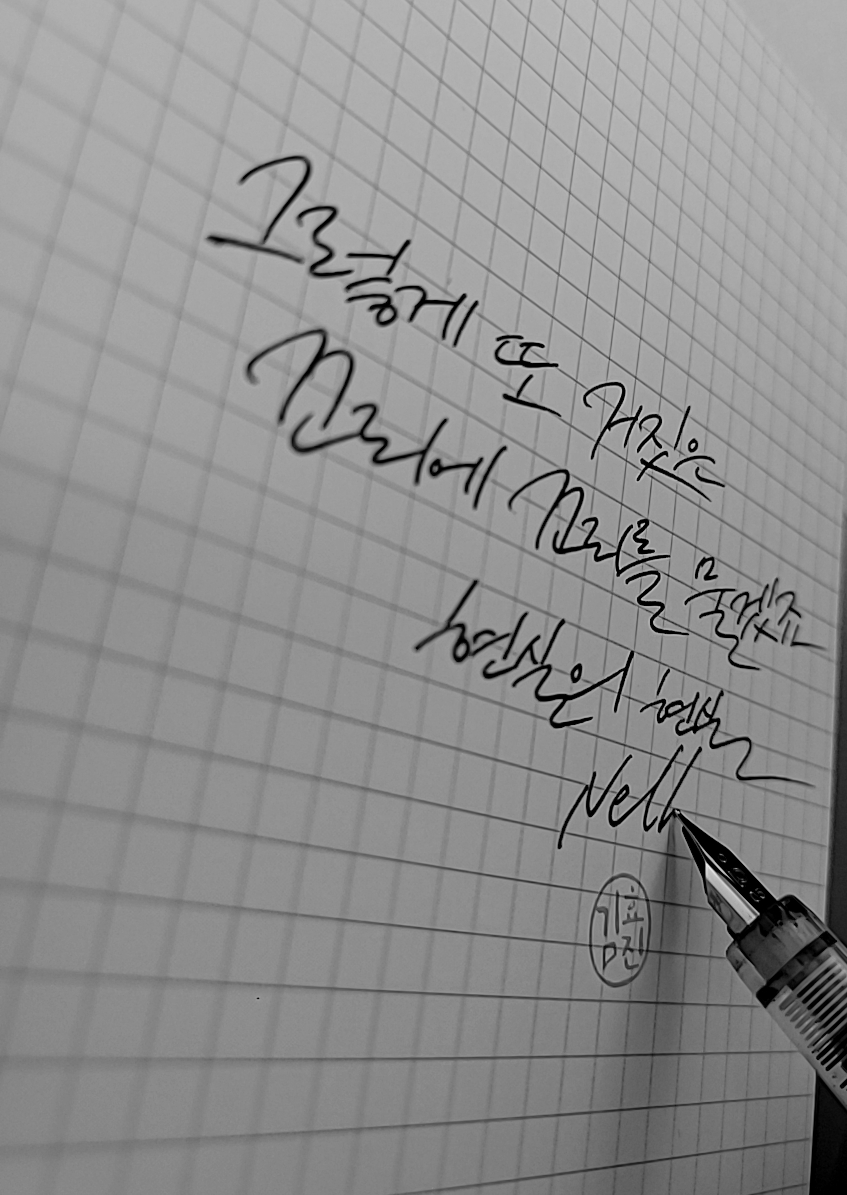 그렇게 또 거짓은
꼬리에 꼬리를 물겠죠
현실의 현실
Nell
김효진